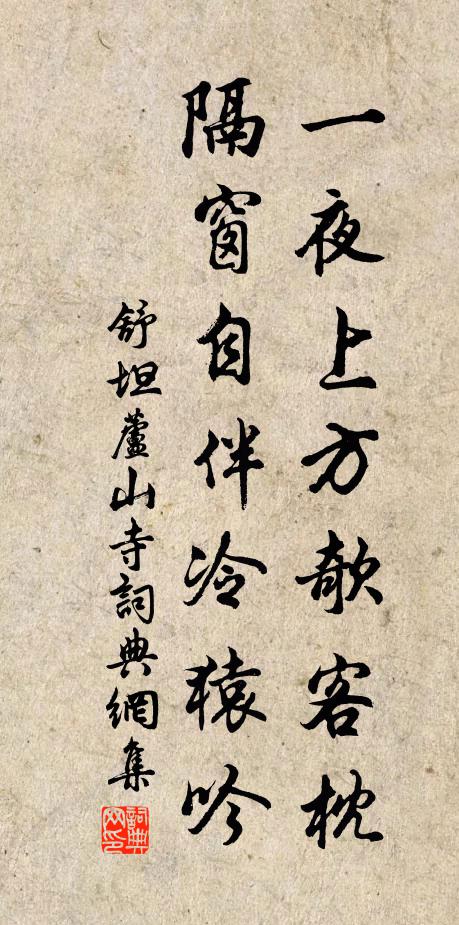 一夜上方欹客枕
隔窗自伴冷猿吟
舒坦蘆山寺詞典網集
詞典网印